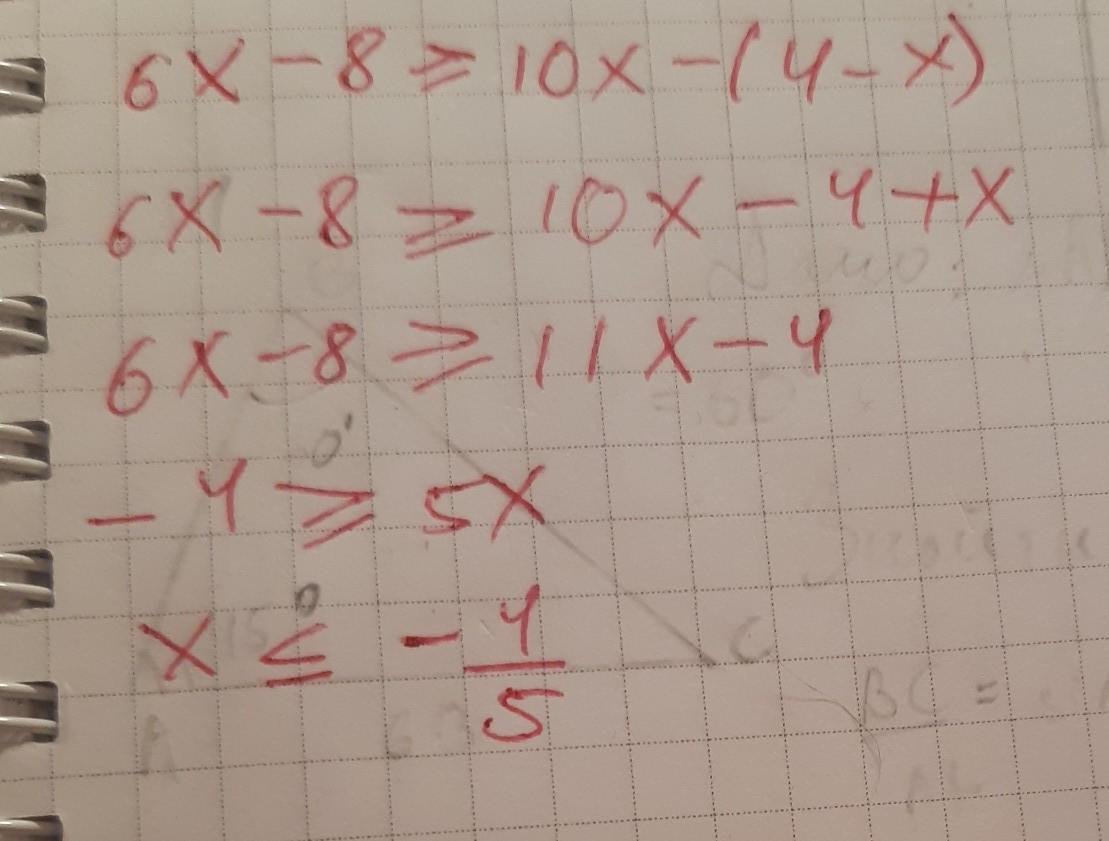 6x - 8 ≥ 10x - (4 - x)
6x - 8 ≥ 10x - 4 + x
6x - 8 ≥ 11x - 4
- 4 ≥ 5x
x ≤ - 4/5
C
BC =
A